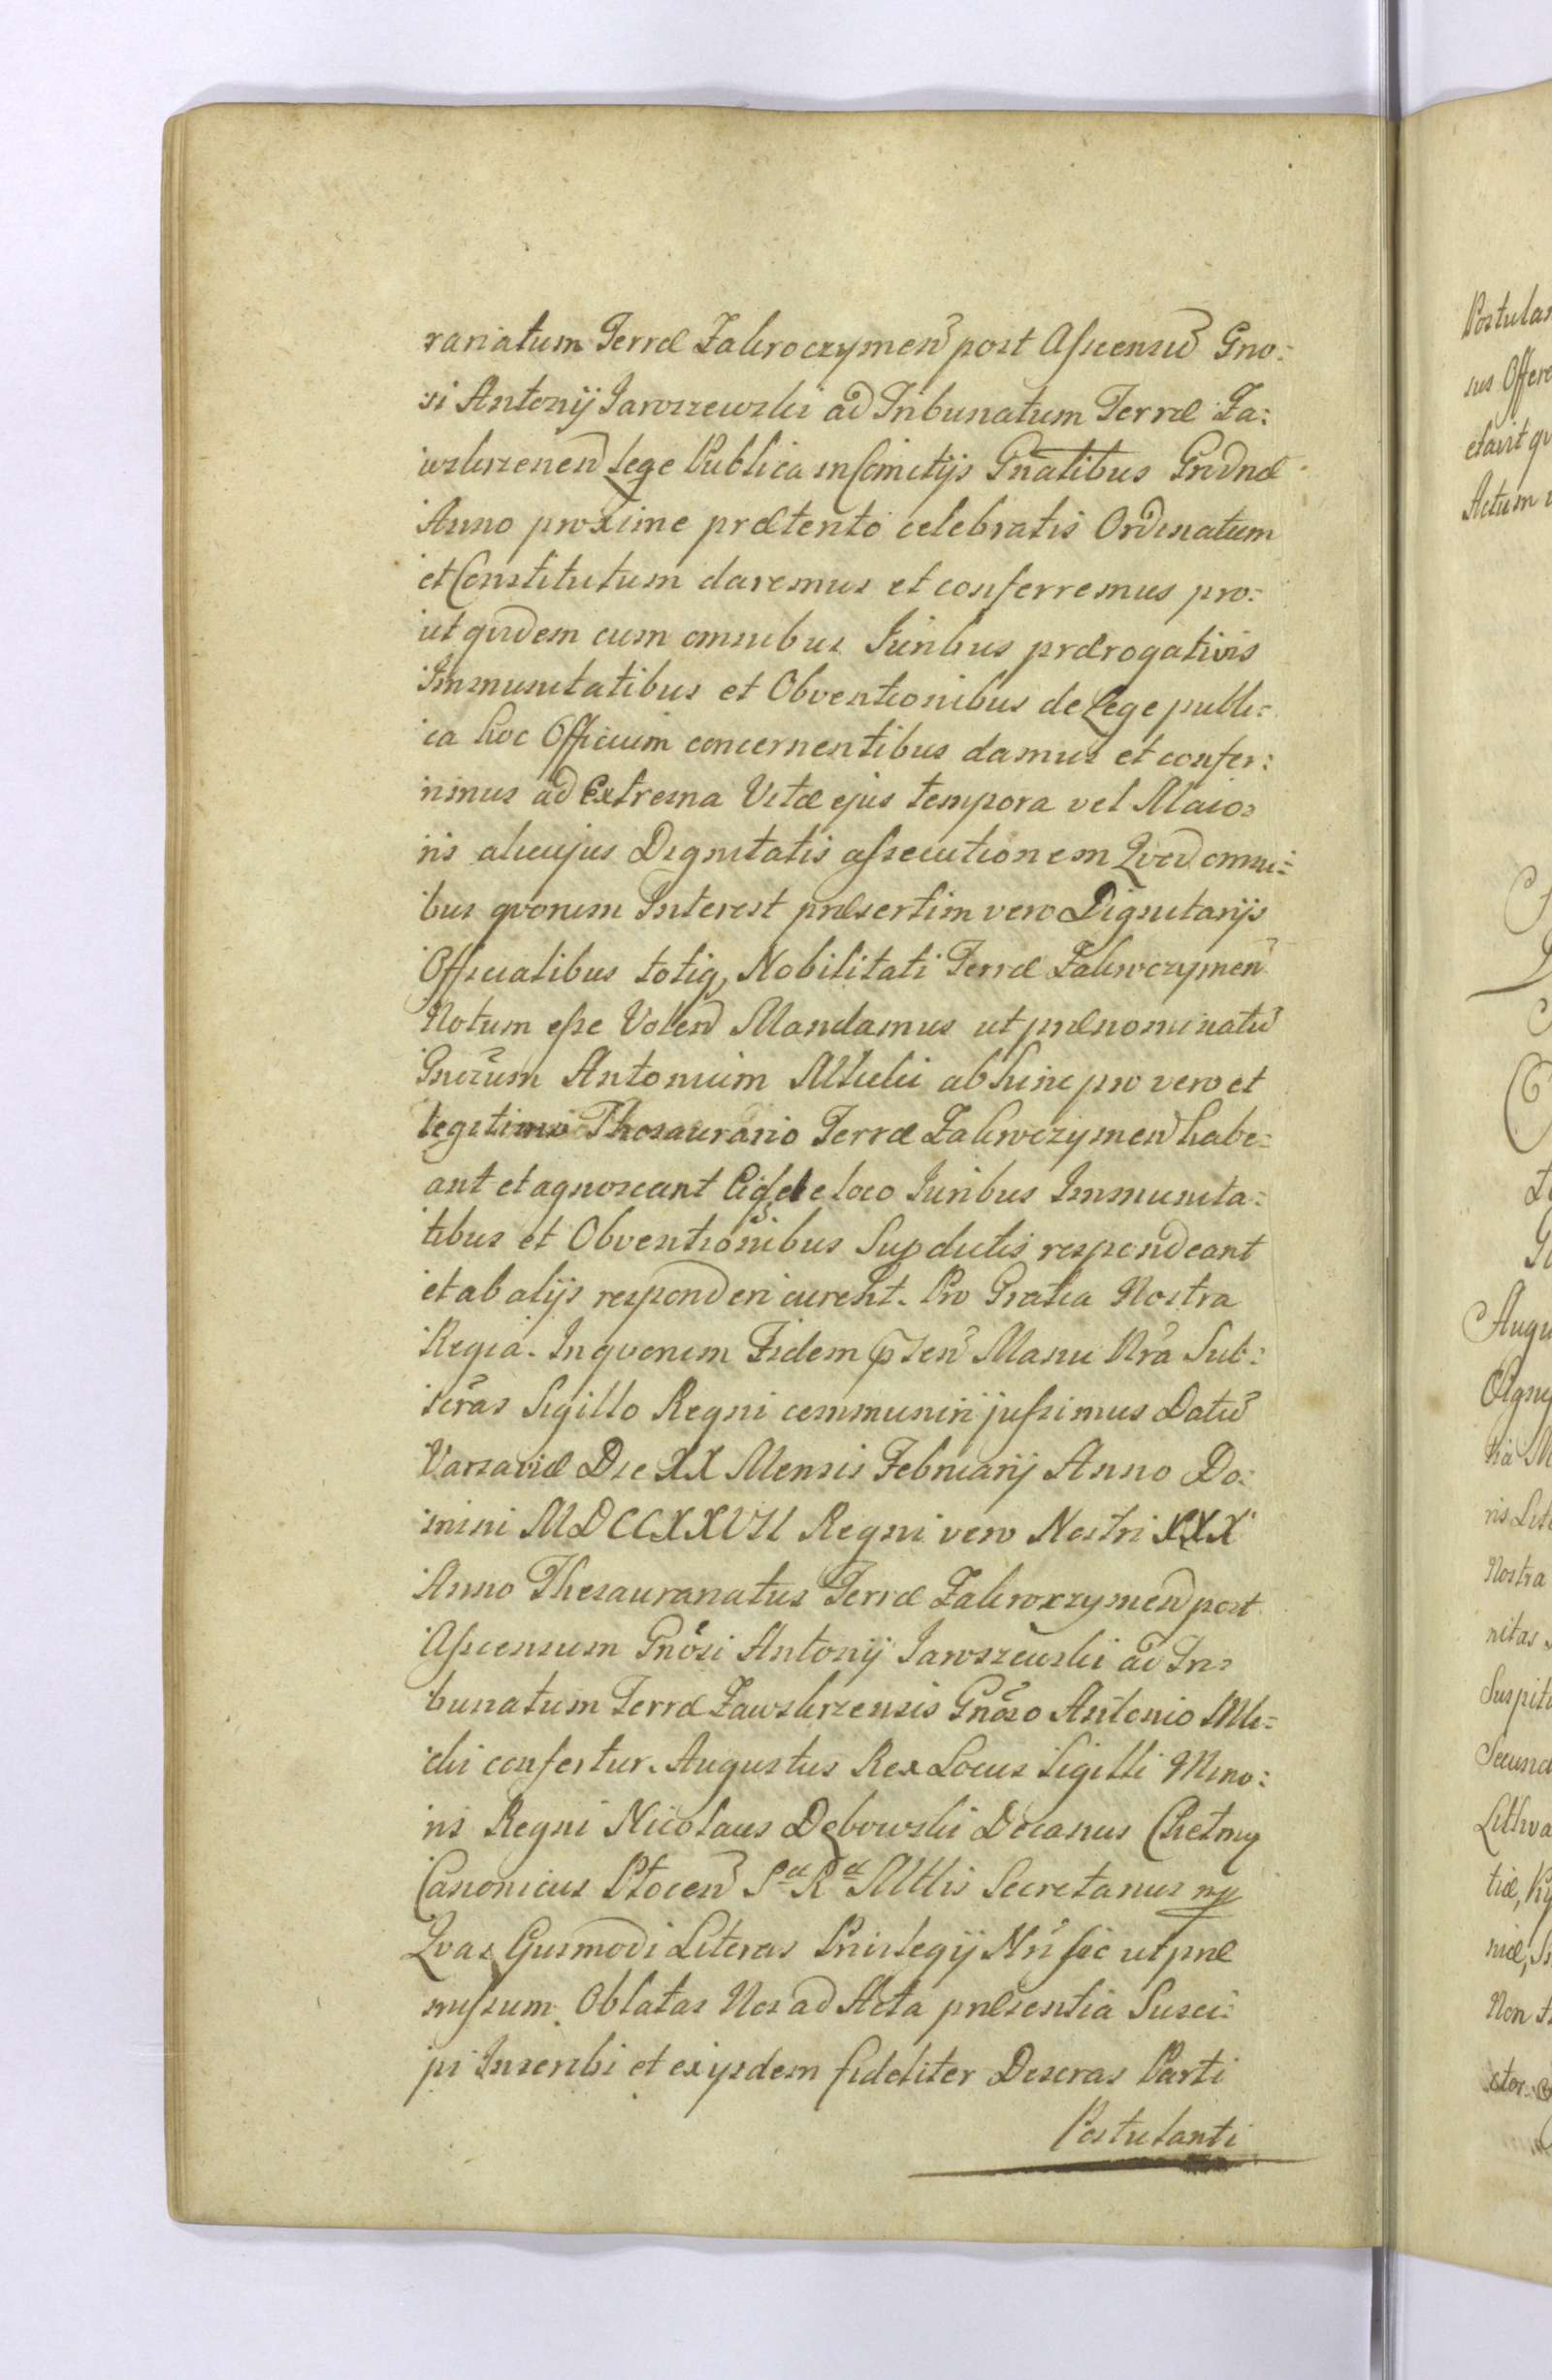 rariatum Terræ Zakroczymeñ post Ascensũ Gno:
si Antonij Jaroszewski ad Tribunatum Terræ Za:
wskrzeneñ Lege Publica in Comitijs Gñalibus Grodnæ
Anno proxime prætento celebratis Ordinatum
et Constitutum daremus et conferremus pro:
ut quidem cum omnibus Juribus prærogativis
Immunitatibus et Obventionibus de Lege publi:
ca hoc Officium concernentibus damus et confer:
rimus ad Extrema Vitæ ejus tempora vel Maio:
ris alicujus Dignitatis assecutionem Qvod omni:
bus qvorum Interest præsertim vero Dignitarijs
Officialibus totiq, Nobilitati Terræ Zakroczymeñ
Notum esse Voleñ Mandamus ut prænominatũ
Gnosum Antonium Milicki abhinc pro vero et
legitimo Thesaurario Terræ Zakroczymeñ habe:
ant et agnoscant Eiq de loco Juribus Immunita:
tibus et Obventionibus Supdictis respondeant
et ab alijs responderi curent. Pro Gratia Nostra
Regia. In qvorum Fidem pseñ Manu Nrã Sub:
scrãs Sigillo Regni communiri jussimus Datũ
Varsaviæ Die XX Mensis Februarij Anno Do:
mini MDCCXXVII Regni vero Nostri XXX
Anno Thesaurariatus Terræ Zakroczymeñ post
Ascensum Gnõsi Antonij Jaroszewski ad Tri:
bunatum Terræ Zawskrzensis Gnõso Antonio Mili:
cki confertur. Augustus Rex Locus Sigilli Mino:
ris Regni Nicolaus Dębowski Decanus Chelmẽ
Canonicus Ploceñ Sæ Ræ Mttis Secretarius mp
Qvas Eiusmodi Literas Privilegij Nrĩ sic ut præ
missum Oblatas Nos ad Acta præsentia Susci:
pi Inscribi et ex ijsdem fideliter Descras Parti
Postulanti